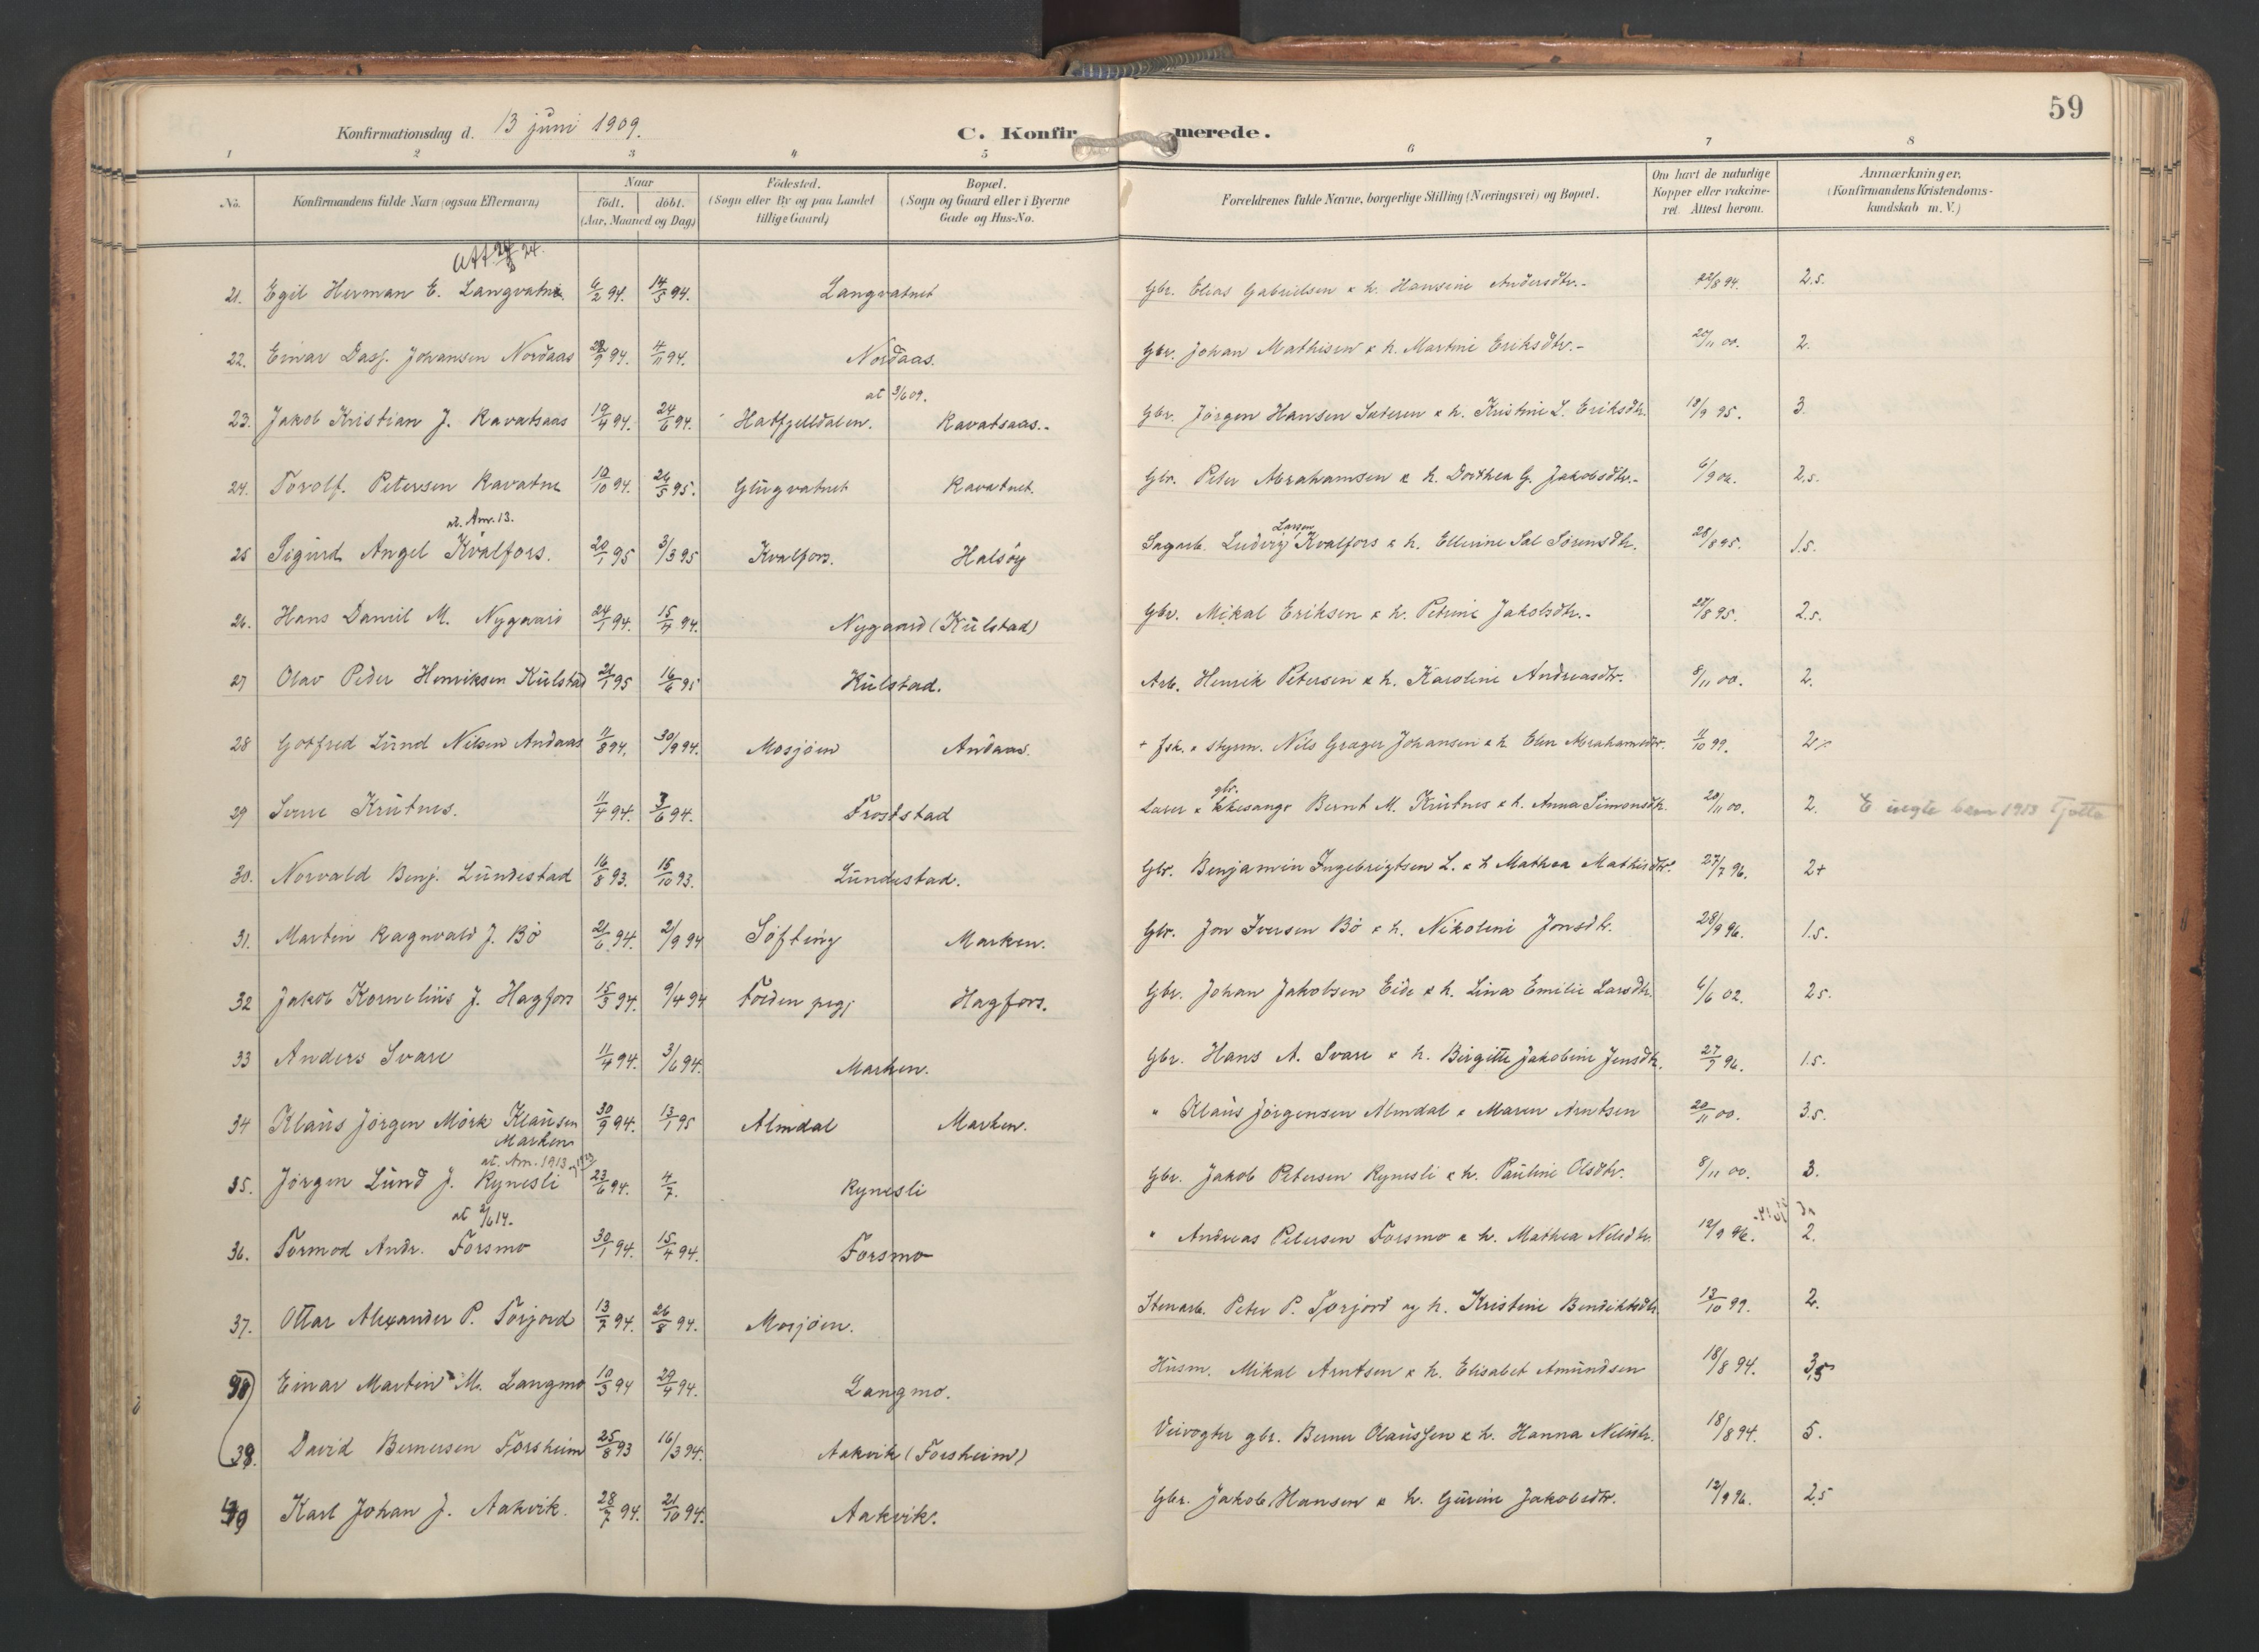 59
Konfirmationsdag d. 13 juni 1909. C. Konfirmerede.
1 2 3 4 5 6 7 8
No. Konfirmandens fulde Navn (ogsaa Efternavn) Naar født. døbt. (Aar, Maaned og Dag) Fødested. (Sogn eller By og paa Landet tillige Gaard) Bopæl. (Sogn og Gaard eller i Byerne Gade og Hus-No. Forældrenes fulde Navne, borgerlige Stilling (Næringsvei) og Bopæl. Om havt de naturlige Kopper eller vakcineret. Attest herom. Anmærkninger. (Konfirmandens Kristendomskundskab m. V.)
21. Egil Herman E. Langvatn 6/2 94. 14/5 94. Langvatnet Gbr. Elias Gabrielsen & h. Hansine Andersdtr.- 22/8 94. 2.5.
22. Einar Dasf. Johansen Nordaas 28/9 94. 4/11 94. Nordaas. Gbr. Johan Mathisen & h. Martine Eriksdtr.- 20/11 00. 2.
at 3/6 09.
23. Jakob Kristian J. Kavatsaas 19/4 94. 24/6 94. Hatfjelldalen. Kavatsaas.- Gbr. Jörgen Hansen & h. Kristine L. Eriksdtr. 18/9 95. 3.
24. Torolf. Petersen Kavatne 10/10 94. 26/5 95. Glugvatnet Kavatnet. Gbr. Peter Abrahamsen & h. Dorthea G. Jakobsdtr.- 6/9 02. 2.5.
at. Amr. 13.
25 Sigurd Angel Kvalfors. 20/1 95 3/3 95 Kvalfors. Halsöy Sagarb. Ludvig Larsen Kvalfors & h. Ellerine Sal Sörensdtr. 28/8 95. 1.5.
26. Hans Daniel M. Nygaard 24/1 94. 15/4 94. Nygaard (Kulstad) Gbr. Mikal Eriksen & h. Petrine Jakobsdtr.- 28/8 95. 2.5.
27 Olav Peder Henriksen Kulstad 21/1 95 16/6 95 Kulstad. Arb. Henrik Petersen & h. Karoline Andreasdtr. 8/11 00. 2.
28 Gotfred Lund Nilsen Andaas 11/8 94. 30/9 94. Mosjöen Andaas. + fsk. & styrm. Nils Græger Johansen & h. Elen Abrahamsdtr. 11/10 99. 2
29 Sverre Krutnes. 11/4 94. 3/6 94. Froststad Lærer & gbr. Bernt M. Krutnes & h. Anna Simonsdtr. 20/11 00. 2. E uegte barn 1913 Tjøtta
30. Norvald Benj. Lundestad 16/8 93. 15/10 93. Lundestad. Gbr. Benjamin Ingebrigtsen L. & h Mathea Mathisdtr. 27/7 96. 2+
31. Martin Ragnvald J. Bö 21/6 94. 2/9 94 Söfting Marken. Gbr. Jon Iversen Bö & h. Nikoline Jonsdtr. 28/9 96. 1.5.
32 Jakob Kornelius J. Hagfors 15/3 94. 9/4 94 Folden prgj Hagfors. Gbr. Johan Jakobsen Eide & h. Lina Emilie Larsdtr. 6/6 02. 2 5.
33 Anders Svare 11/4 94. 3/6 94. Marken. Gbr. Hans A. Svare & h. Birgitte Jakobine Jensdtr. 27/7 96. 1.5.
34 Klaus Jörgen Mörk Klausen Marken 30/9 94. 13/1 95 Almdal Marken. " Klaus Jörgensen Almdal & Maren Arntsen 20/11 00. 3.5.
at. Am. 1913
35. Jörgen Lund J. Rynesli 23/6 94. 4/7. Rynesli Gbr. Jakob Petersen Rynesli & h. Pauline Olsdtr. 8/11 00. 3.
at 2/6 14.
36. Tormod Andr. Forsmo 30/1 94. 15/4 94. Forsmo " Andreas Petersen Forsmo & h. Mathea Nilsdtr. 12/9 96. 2.
37. Ottar Alexander P. Torjord 13/7 94. 26/8 94. Mosjöen. Stenarb. Peter P. Torjord og h. Kristine Bendiktsdtr. 13/10 99. 2.
38 Einar Martin M. Langmo 10/3 94 29/4 94. Langmo. Husm. Mikal Arntsen & h. Elisabet Amundsen 18/8 94. 3,5
39. David Bernersen Forsheim 25/8 93 16/3 94. Aakvik (Forsheim) Veivogter gbr. Berner Olaussen & h. Hanna Nilsdtr. 18/8 94. 5.
40 Karl Johan J. Aakvik. 28/7 94. 21/10 94. Aakvik. Gbr. Jakob Hansen & h. Gurine Jakobsdtr. 12/9 96. 2,5